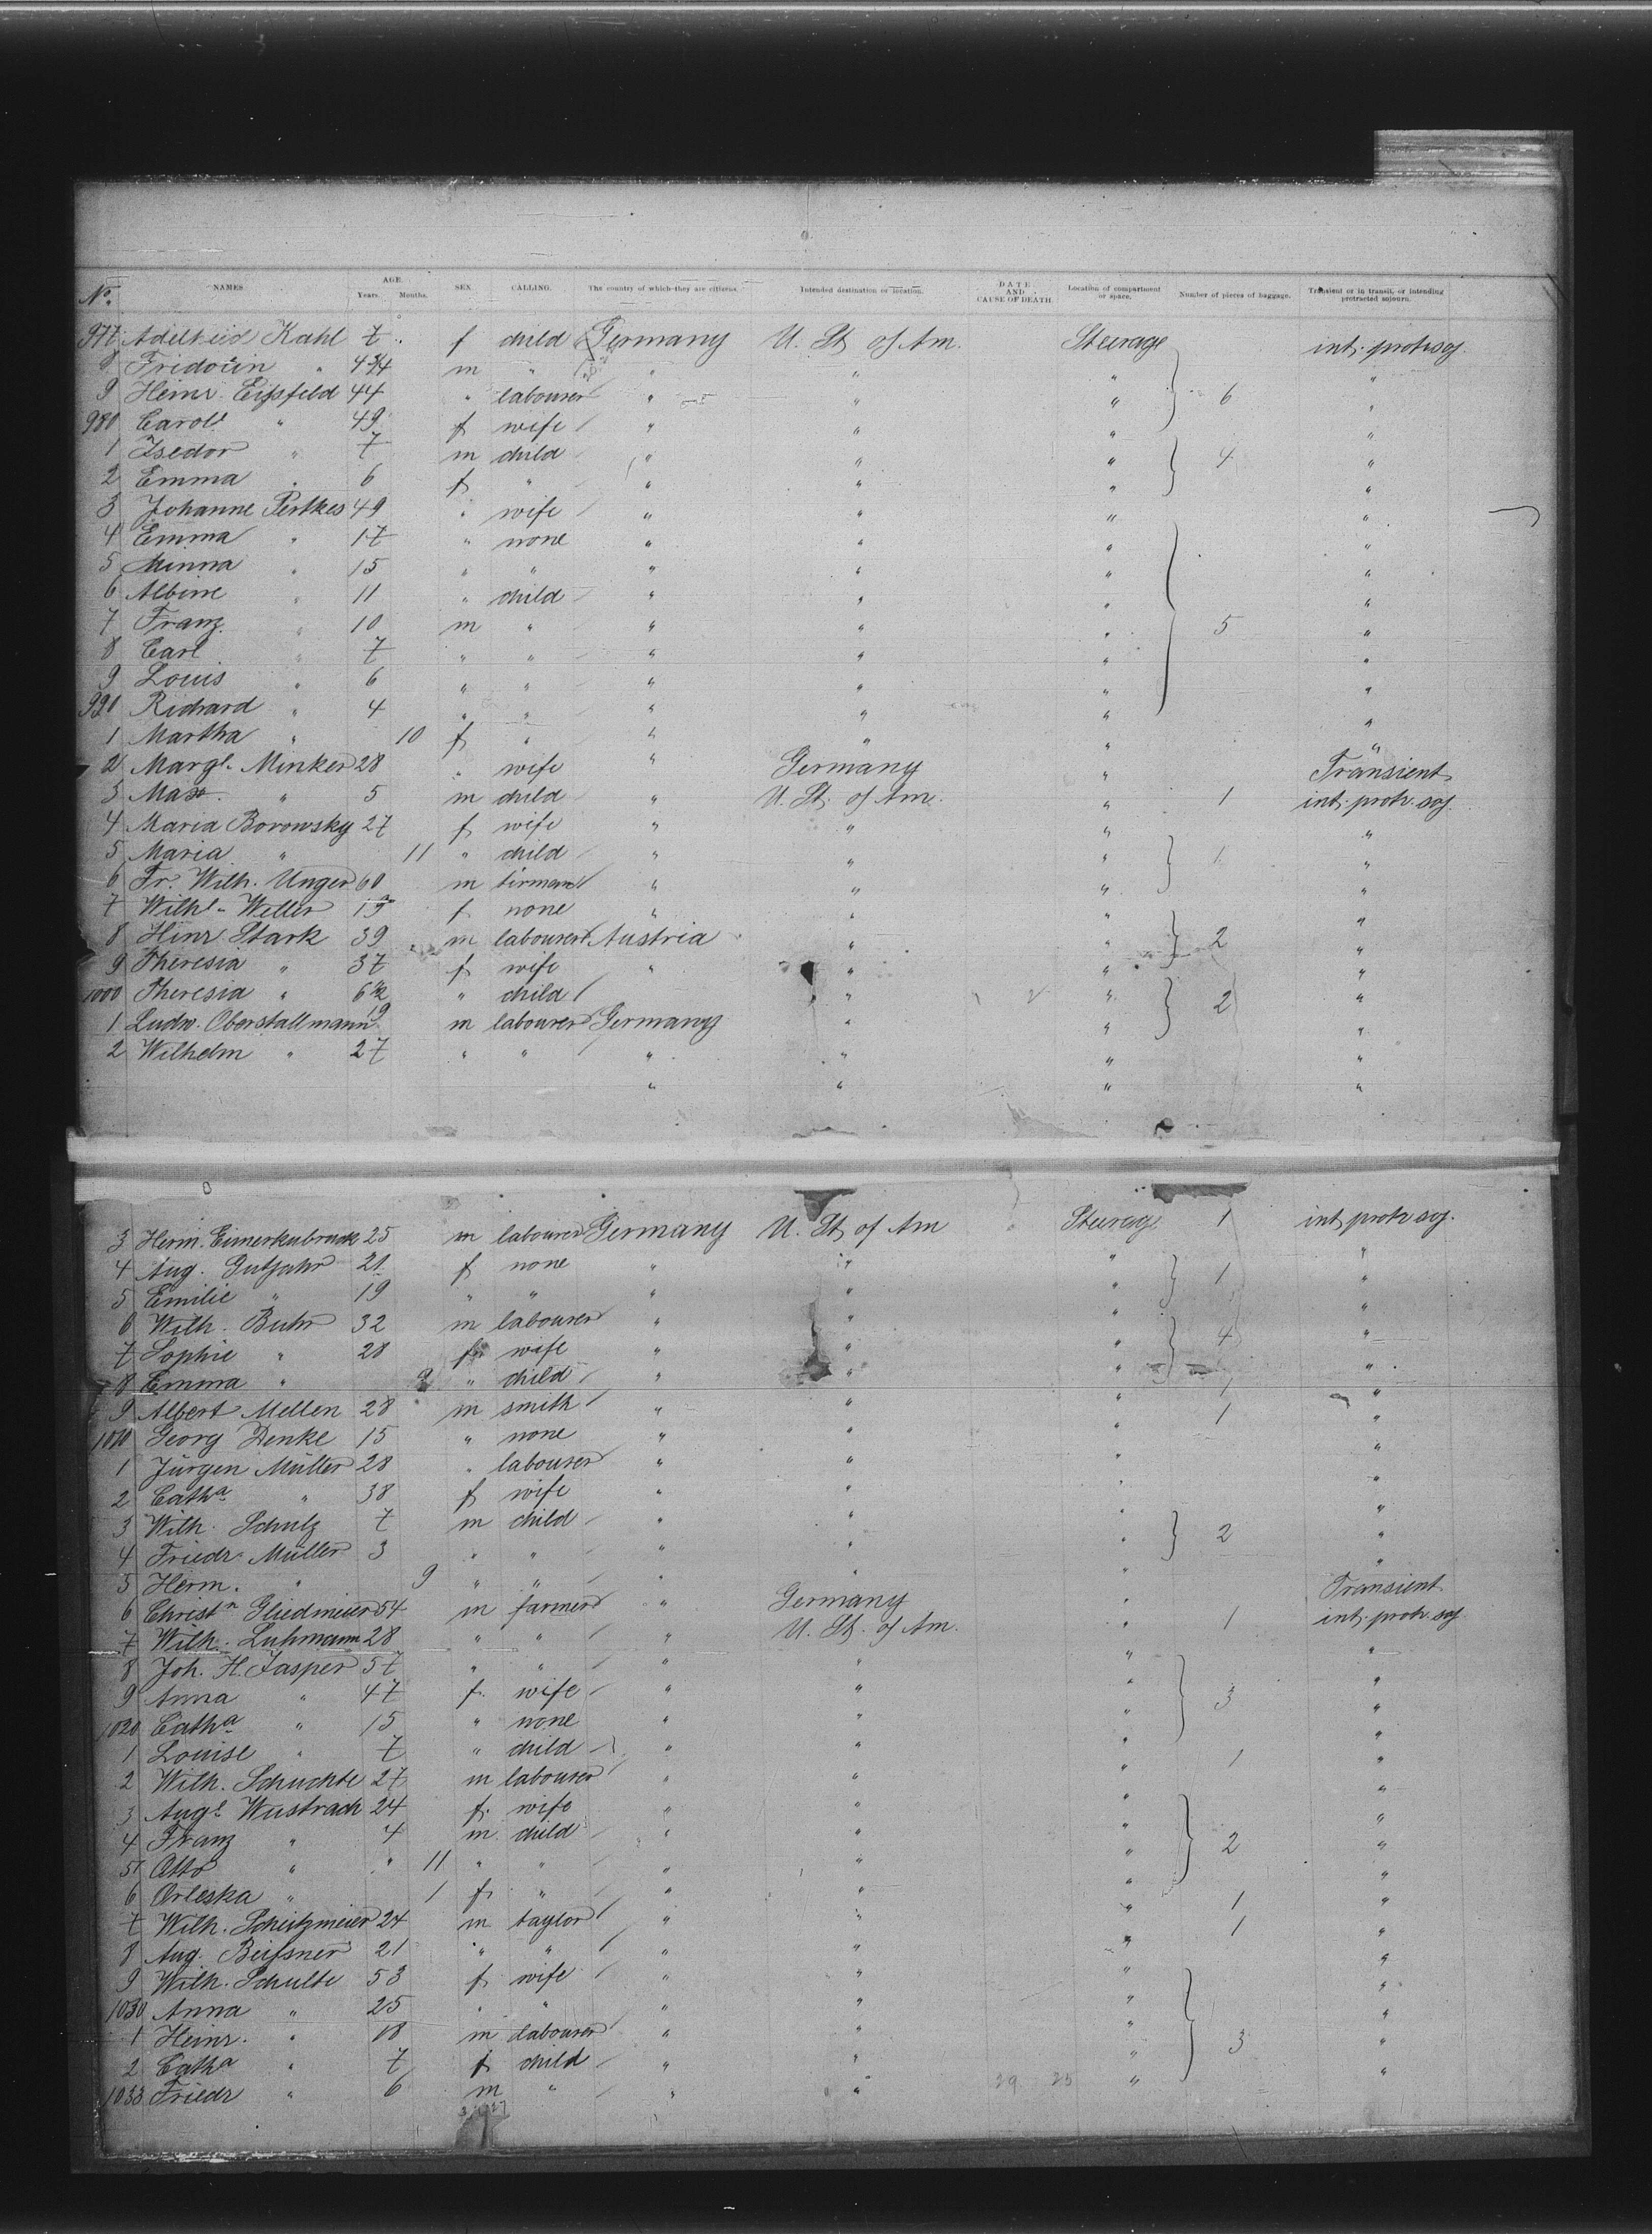 No. NAMES AGE. Years. Months. SEX. CALLING. The country of which they are citizens. Intended destination or location. DATE AND CAUSE OF DEATH. Location of compartment or space. Number of pieces of baggage. Transient or in transit, or intending protracted sojourn.
977 Adelheid Kahl 7 f child Germany U. St. of Am. Steerage int. protr. soj.
8 Fridolin " m " " " " "
9 Heinr. Eißfeld 44 " labourer " " " 6 "
980 Carol. " 49 f wife " " " "
1 Isedor " 7 m child " " " 4 "
2 Emma " 6 f " " " " "
3 Johanne Pertkes 49 " wife " " " "
4 Emma " 17 " none " " " "
5 Minna " 15 " " " " " "
6 Albine " 11 " child " " " "
7 Franz " 10 m " " " " 5 "
8 Carl " 7 " " " " " "
9 Louis " 6 " " " " " "
990 Richard " 4 " " " " " "
1 Martha " 10 f " " " " "
2 Margt. Minker 28 " wife " Germany " Transient
3 Max " 5 m child " U. St. of Am. " 1 int. protr. soj.
4 Maria Borowsky 27 f wife " " " "
5 Maria " 11 " child " " " 1 "
6 Fr. Wilh. Unger 60 m " " " "
7 Wilhe. Weller 19 f none " " " "
8 Hinr. Stark 39 m labourer Austria " " 2 "
9 Theresia " 37 f wife " " " "
1000 Theresia " 6 " child " " 2 "
1 Ludw. Oberstallmann 19 m labourer Germany " " "
2 Wilhelm " 27 " " " " " "
" " " "
3 Herm. 25 m labourer Germany U. St. of Am Steerage 1 int. protr. soj.
4 Aug. Gutjahr 21 f none " " " "
5 Emilie " 19 " " " " " 1 "
6 Wilh. Buhr 32 m labourer " " " "
7 Sophie " 28 f wife " " " 4 "
8 Emma " 9 " child " " " "
9 Albert Mellen 28 m smith " " " 1 "
1010 Georg Denke 15 " none " " " 1 "
1 Jürgen Müller 28 " labourer " " " "
2 Catha " 38 f wife " " " "
3 Wilh. Schulz 7 m child " " " "
4 Friedr. Müller 3 " " " " " 2 "
5 Herm. " 9 " " " " " "
6 Christn Gliedmeier 54 m farmer " Germany " Transient
7 Wilh. Luhmann 28 " " " U. St. of Am. " 1 int. protr. soj.
8 Joh. H. Jasper 57 " " " " " "
9 Anna " 47 f wife " " " 3 "
1020 Catha " 15 " none " " " "
1 Louise " 7 " child " " " "
2 Wilh. Schuchte 27 m labourer " " " 1 "
3 Auge Wustrach 24 f wife " " " "
4 Franz " 4 m child " " " "
5 Otto " " 11 " " " " " 2 "
6 Orleska " 1 f " " " " "
7 Wilh. Scheitzmeier 24 m taylor " " " 1 "
8 Aug. Beißner 21 " " " " " 1 "
9 Wilh. Schulte 53 f wife " " " "
1030 Anna " 25 " " " " " "
1 Heinr. " 18 m labourer " " " "
2 Catha " 7 f child " " " 3 "
1033 Friedr " 6 m " " " 29 25 " "